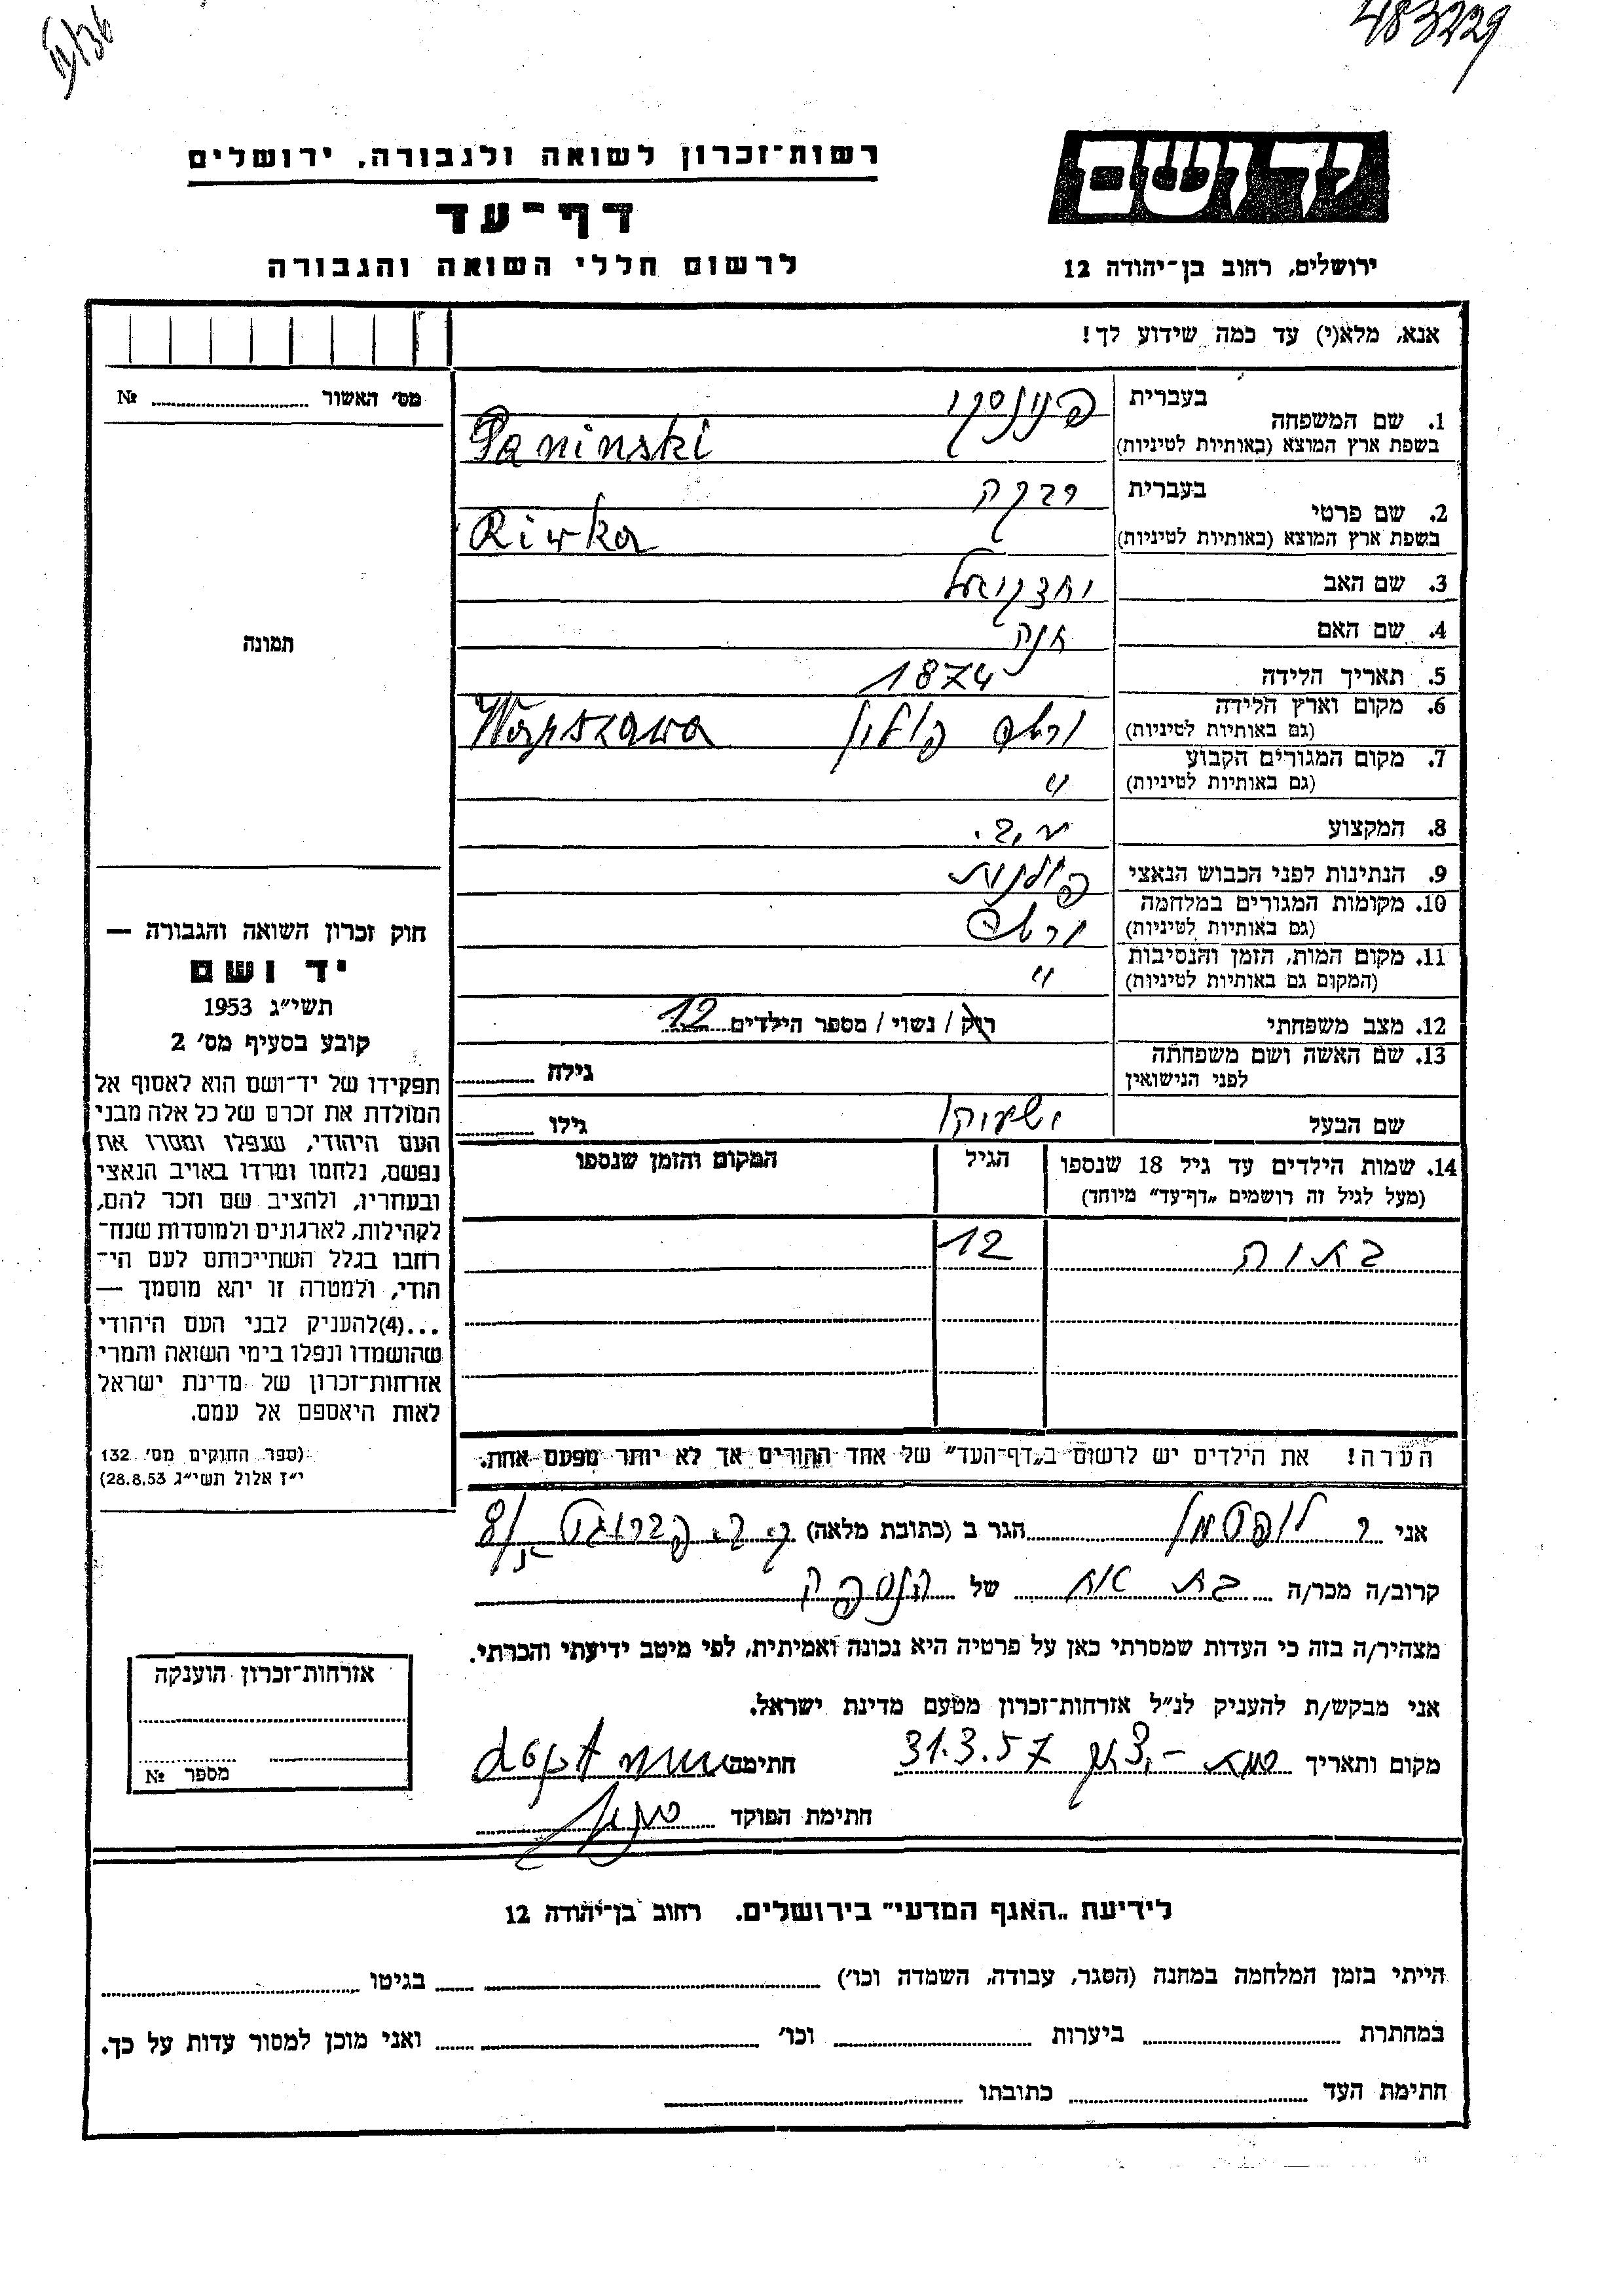 483229
יד ושם
רשות־זכרון לשואה ולגבורה, ירושלים
דף־עד
לרשום חללי השואה והגבורה
ירושלים, רחוב בן־יהודה 12
אנא, מלא(י) עד כמה שידוע לך!
מס׳ האשור ........ №
תמונה
1. שם המשפחה בעברית פנינסקי
בשפת ארץ המוצא (באותיות לטיניות) Paninski
2. שם פרטי בעברית רבקה
בשפת ארץ המוצא (באותיות לטיניות) Riwka
3. שם האב יחזקיאל
4. שם האם חנה
5. תאריך הלידה 1874
6. מקום וארץ הלידה ורשה פולין Warszawa
(גם באותיות לטיניות)
7. מקום המגורים הקבוע "
(גם באותיות לטיניות)
8. המקצוע
9. הנתינות לפני הכבוש הנאצי פולנית
10. מקומות המגורים במלחמה ורשה
(גם באותיות לטיניות)
11. מקום המות, הזמן והנסיבות "
(המקום גם באותיות לטיניות)
12. מצב משפחתי רווק / נשוי / מספר הילדים 12
13. שם האשה ושם משפחתה
לפני הנישואין
גילה ........
שם הבעל
גילו ........
14. שמות הילדים עד גיל 18 שנספו הגיל המקום והזמן שנספו
(מעל לגיל זה רושמים „דף־עד" מיוחד)
12
הערה! את הילדים יש לרשום ב„דף־העד" של אחד ההורים אך לא יותר מפעם אחת.
חוק זכרון השואה והגבורה —
יד ושם
תשי״ג 1953
קובע בסעיף מס׳ 2
תפקידו של יד־ושם הוא לאסוף אל
המולדת את זכרם של כל אלה מבני
העם היהודי, שנפלו ומסרו את
נפשם, נלחמו ומרדו באויב הנאצי
ובעוזריו, ולהציב שם וזכר להם,
לקהילות, לארגונים ולמוסדות שנח־
רבו בגלל השתייכותם לעם הי־
הודי, ולמטרה זו יהא מוסמך —
...(4)להעניק לבני העם היהודי
שהושמדו ונפלו בימי השואה והמרי
אזרחות־זכרון של מדינת ישראל
לאות היאספם אל עמם.
(ספר החוקים מס׳ 132
י״ז אלול תשי״ג 28.8.53)
אני הגר ב (כתובת מלאה)
קרוב/ה מכר/ה בת אח של הנספה
מצהיר/ה בזה כי העדות שמסרתי כאן על פרטיה היא נכונה ואמיתית, לפי מיטב ידיעתי והכרתי.
אני מבקש/ת להעניק לנ״ל אזרחות־זכרון מטעם מדינת ישראל.
מקום ותאריך 31.3.57 חתימה
חתימת הפוקד
אזרחות־זכרון הוענקה
מספר №
לידיעת „האגף המדעי" בירושלים. רחוב בן־יהודה 12
הייתי בזמן המלחמה במחנה (הסגר, עבודה, השמדה וכו׳) ........ בגיטו ........
במחתרת ........ ביערות ........ וכו׳ ........ ואני מוכן למסור עדות על כך.
חתימת העד ........ כתובתו ........